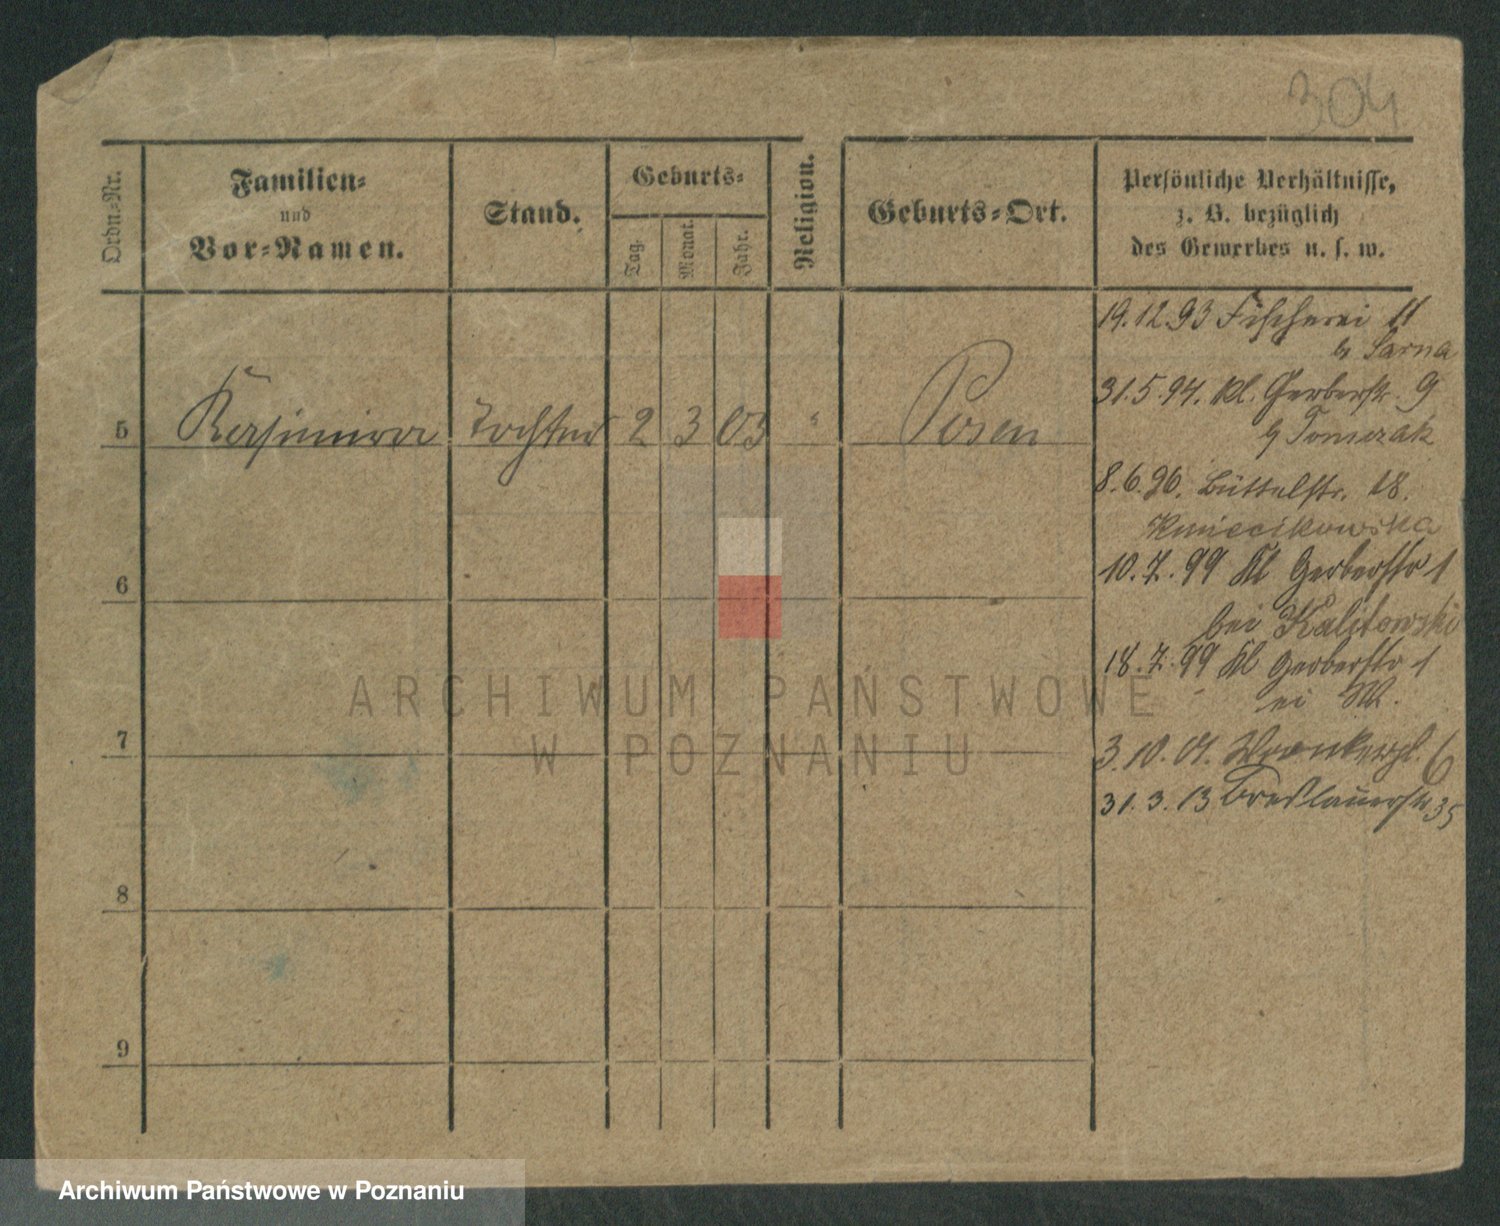 304
Ordn.-Nr.
Familien-
und
Vor-Namen.
Stand.
Geburts-
Tag.
Monat.
Jahr.
Religion.
Geburts-Ort.
Persönliche Verhältnisse,
z. B. bezüglich
des Gewerbes u. s. w.
19.12.93 Fischerei 11
b Sarna
31.5.94. Kl. Gerberstr. 9
b Tomczak
5 Kasimira Tochter 2 3 03 " Posen
8.6.96. Büttelstr. 18.
Kmiecikowska
10.7.99 Kl Gerberstr 1
bei Kalitowski
18.7.99 Kl Gerberstr 1
ei W.
3.10.01. Wronkerpl. 6
31.3.13 Breslauerstr 35
6
7
8
9
ARCHIWUM PAŃSTWOWE
W POZNANIU
Archiwum Państwowe w Poznaniu